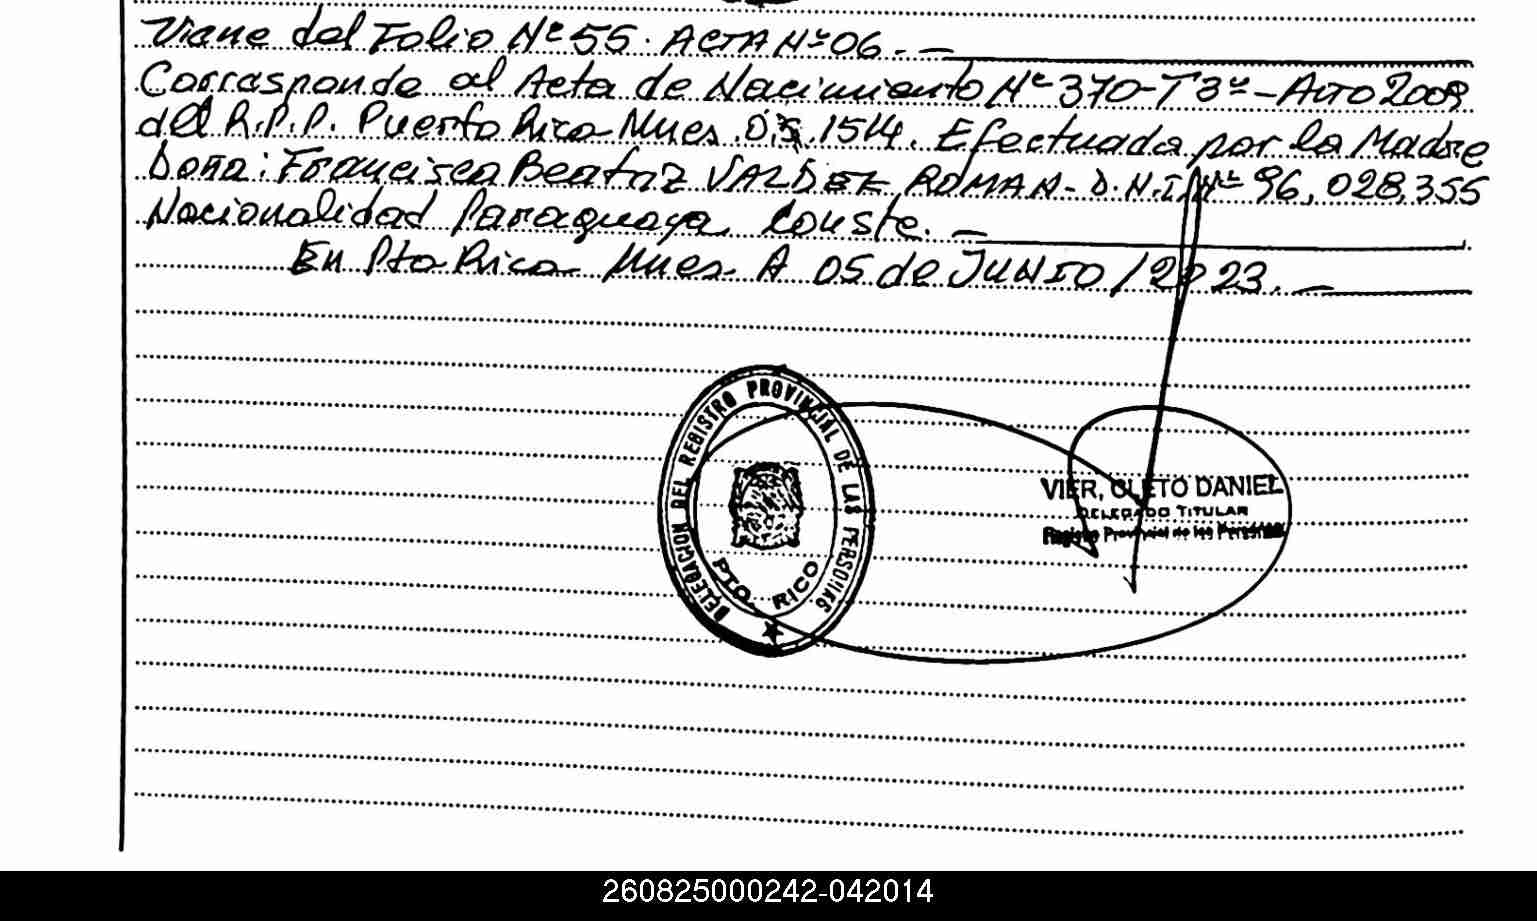 Viene del Folio Nº 55. ACTA Nº 06. —
Corresponde al Acta de Nacimiento Nº 370-T3º-AÑO 2009
del R.P.P. Puerto Rico Mnes. 1514. Efectuada por la Madre
Doña: Francisca Beatriz VALDEZ ROMAN- D.N.I. Nº 96,028,355
Nacionalidad Paraguaya Conste. —
En Pto Rico Mnes. A 05 de JUNIO/2023. —
DELEGACION DEL REGISTRO PROVINCIAL DE LAS PERSONAS
PTO. RICO
VIER, CLETO DANIEL
DELEGADO TITULAR
Registro Provincial de las Personas
260825000242-042014